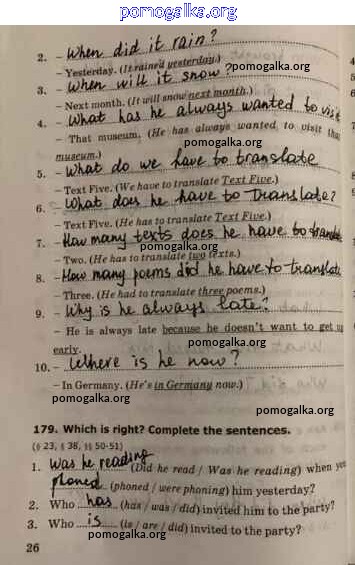 pomogalka.org
2. – When did it rain?
pomogalka.org
– Yesterday. (It rained yesterday.)
3. – When will it snow?
– Next month. (It will snow next month.)
pomogalka.org
4. – What has he always wanted to visit
– That museum. (He has always wanted to visit that
pomogalka.org
museum.)
5. – What do we have to translate
– Text Five. (We have to translate Text Five.)
pomogalka.org
6. – What does he have to translate?
– Text Five. (He has to translate Text Five.)
pomogalka.org
7. – How many texts does he have to translate
pomogalka.org
– Two. (He has to translate two texts.)
8. – How many poems did he have to translate
– Three. (He had to translate three poems.)
pomogalka.org
9. – Why is he always late?
pomogalka.org
– He is always late because he doesn't want to get up
early.
10. – Where is he now?
– In Germany. (He's in Germany now.)
pomogalka.org
pomogalka.org
179. Which is right? Complete the sentences.
(§ 23, § 38, §§ 50-51)
pomogalka.org
1. Was he reading (Did he read / Was he reading) when you
phoned (phoned / were phoning) him yesterday?
pomogalka.org
2. Who has (has / was / did) invited him to the party?
3. Who is (is / are / did) invited to the party?
pomogalka.org
26